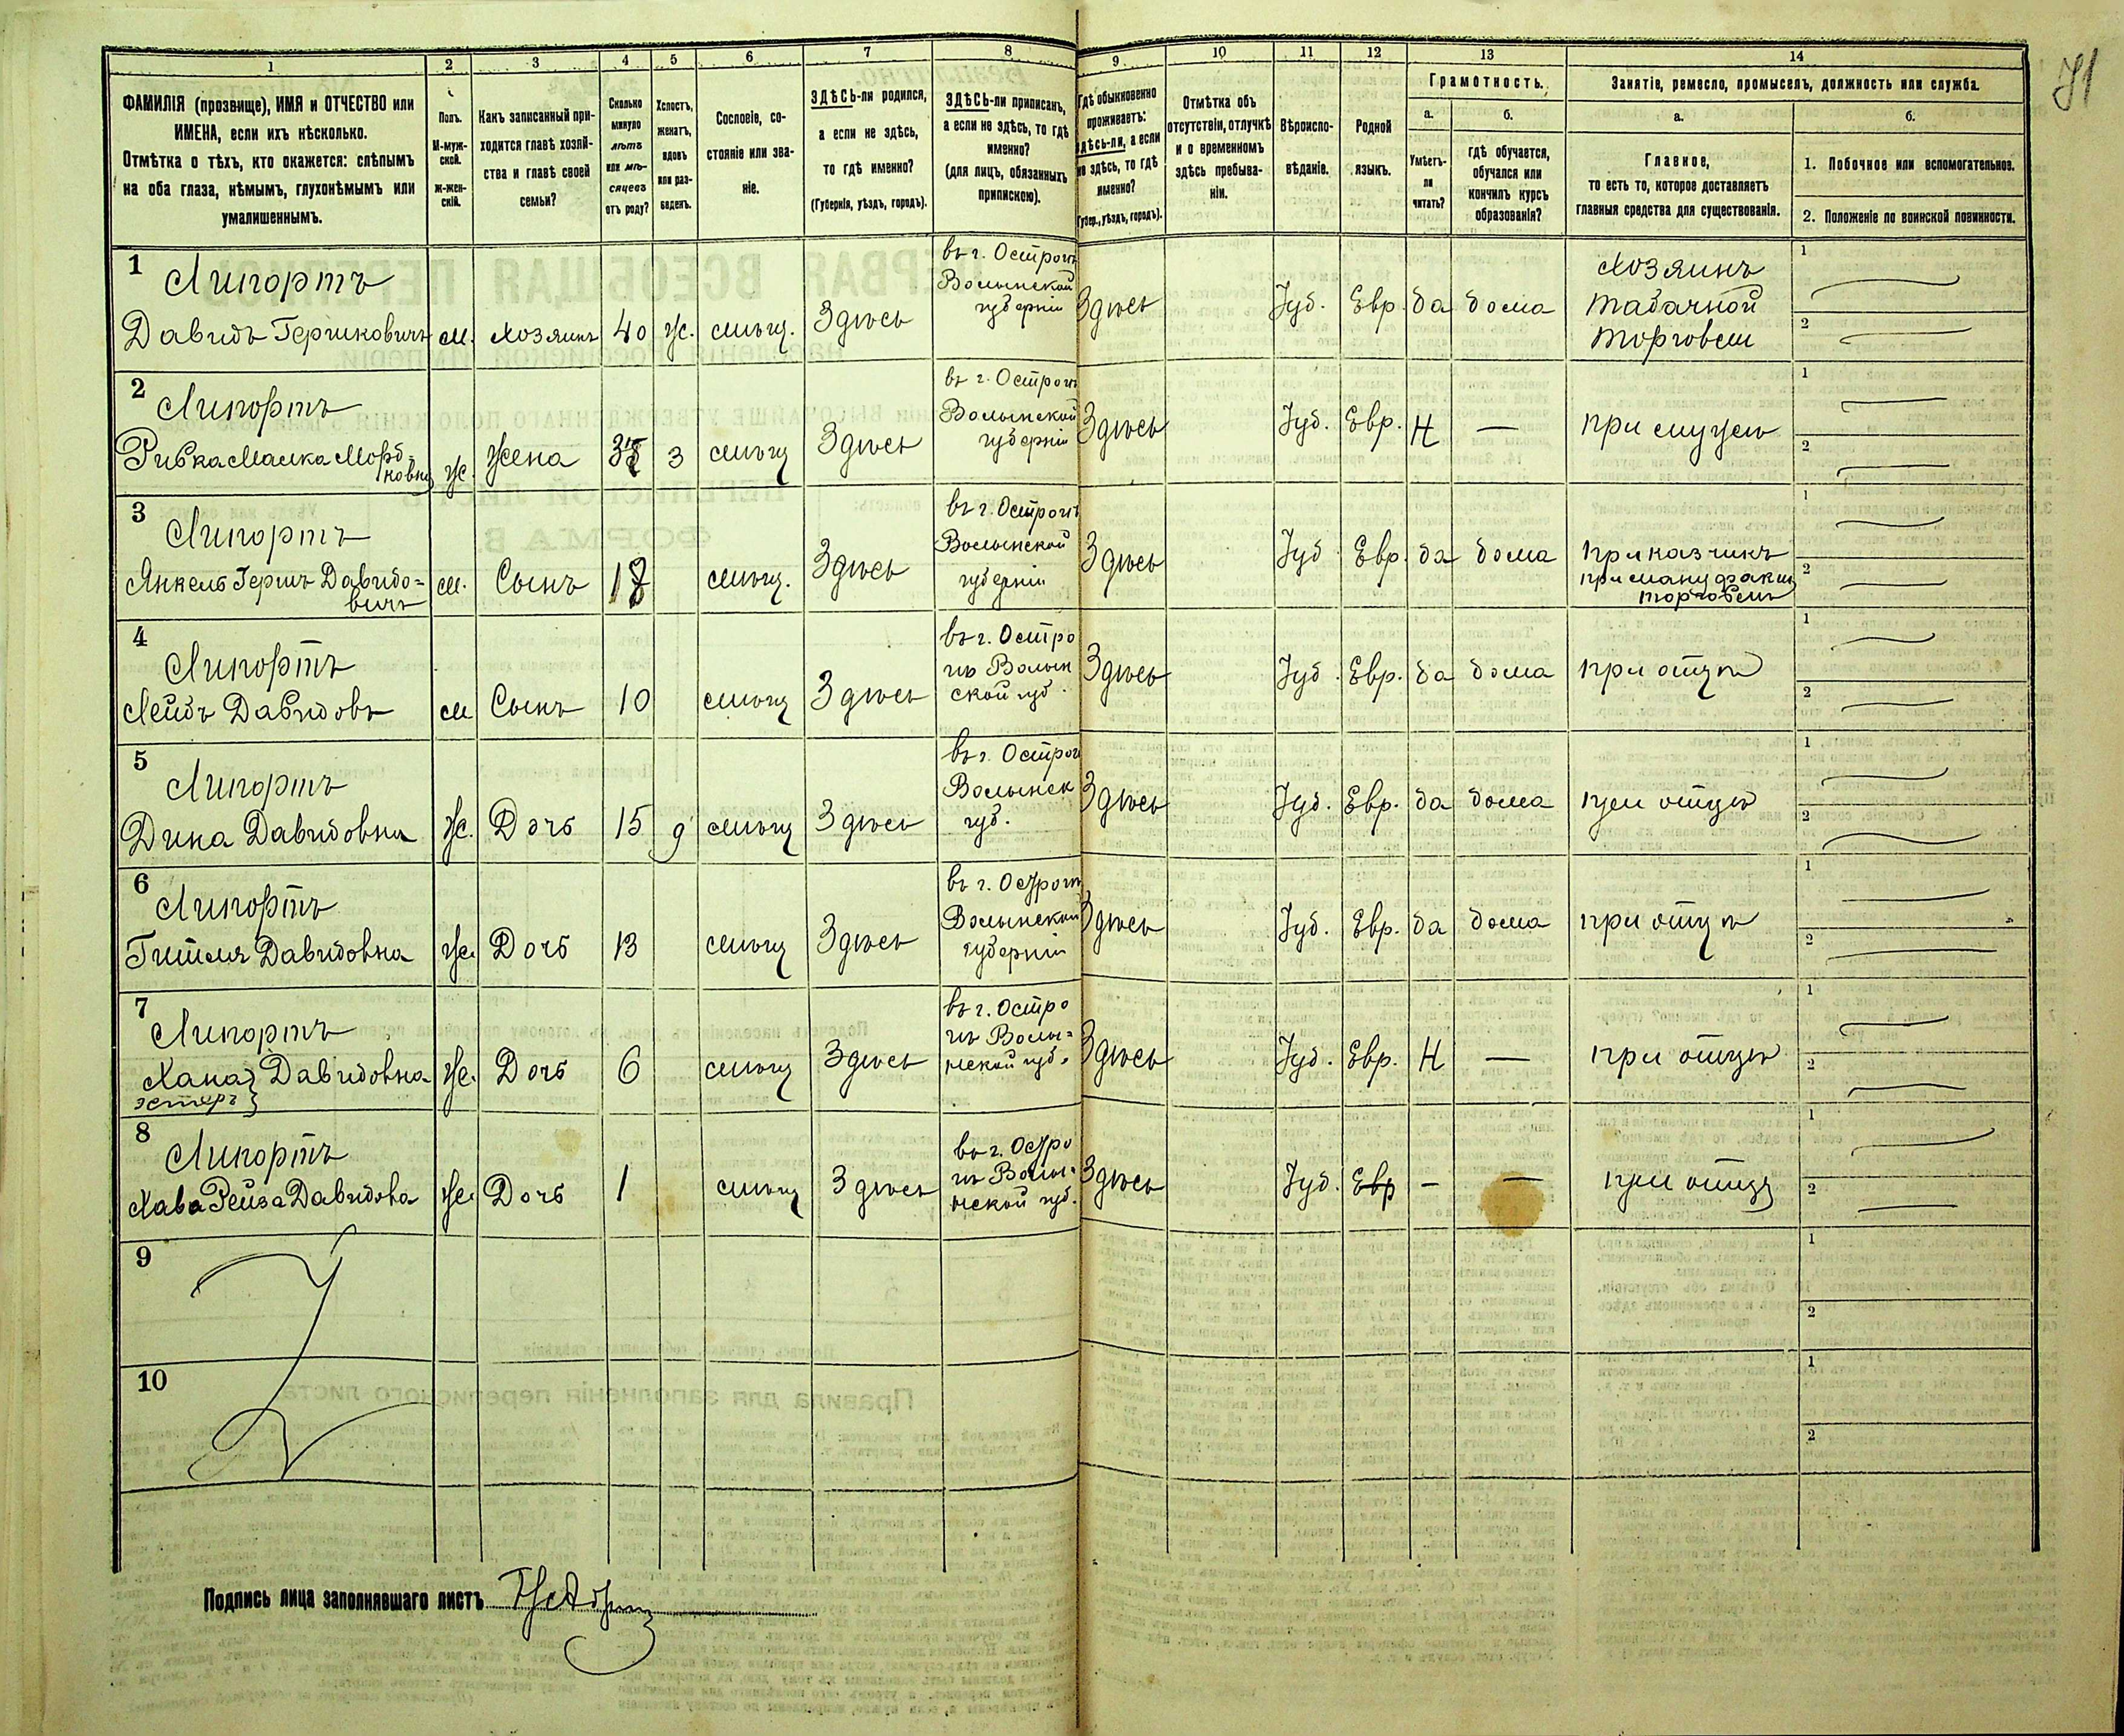 71
1 2 3 4 5 6 7 8 9 10 11 12 13 14
ФАМИЛІЯ (прозвище), ИМЯ и ОТЧЕСТВО или
ИМЕНА, если ихъ нѣсколько.
Отмѣтка о тѣхъ, кто окажется: слѣпымъ
на оба глаза, нѣмымъ, глухонѣмымъ или
умалишеннымъ.
Полъ.
М-муж-
ской.
Ж-жен-
скій.
Какъ записанный при-
ходится главѣ хозяй-
ства и главѣ своей
семьи?
Сколько
минуло
лѣтъ
или мѣ-
сяцевъ
отъ роду?
Холостъ,
женатъ,
вдовъ
или раз-
веденъ.
Сословіе, со-
стояніе или зва-
ніе.
ЗДѢСЬ-ли родился,
а если не здѣсь,
то гдѣ именно?
(Губернія, уѣздъ, городъ).
ЗДѢСЬ-ли приписанъ,
а если не здѣсь, то гдѣ
именно?
(для лицъ, обязанныхъ
припискою).
Гдѣ обыкновенно
проживаетъ:
здѣсь-ли, а если
не здѣсь, то гдѣ
именно?
(Губер., уѣздъ, городъ).
Отмѣтка объ
отсутствіи, отлучкѣ
и о временномъ
здѣсь пребыва-
ніи.
Вѣроиспо-
вѣданіе.
Родной
языкъ.
Грамотность.
а.
Умѣетъ-
ли
читать?
б.
гдѣ обучается,
обучался или
кончилъ курсъ
образованія?
Занятіе, ремесло, промыселъ, должность или служба.
а.
Главное,
то есть то, которое доставляетъ
главныя средства для существованія.
б.
1. Побочное или вспомогательное.
2. Положеніе по воинской повинности.
1
Липортъ
Давидъ Гершковичъ м. хозяинъ 40 ж. мѣщ. Здѣсь
въ г. Острогѣ
Волынской
губерніи
Здѣсь Іуд. Евр. да дома
Хозяинъ
табачной
торговли
1
2
2
Липортъ
Ривка Малка Морд-
ковна ж. жена 3 мѣщ Здѣсь
въ г. Острогѣ
Волынской
губерніи
Здѣсь Іуд. Евр. Н — при мужѣ
1
2
3
Липортъ
Янкель Гершъ Давидо-
вичъ м. Сынъ 18 мѣщ. Здѣсь
въ г. Острогѣ
Волынской
губерніи
Здѣсь Іуд Евр. да дома
приказчикъ
при мануфакт
торговлѣ
1
2
4
Липортъ
Лейбъ Давидовъ м Сынъ 10 мѣщ Здѣсь
въ г. Остро
гѣ Волын
ской губ.
Здѣсь Іуд. Евр. да дома при отцѣ
1
2
5
Липортъ
Дина Давидовна ж. Дочь 15 д мѣщ Здѣсь
въ г. Острог
Волынск
губ.
Здѣсь Іуд. Евр. да дома при отцѣ
1
2
6
Липортъ
Гителя Давидовна ж. Дочь 13 мѣщ Здѣсь
въ г. Острогѣ
Волынской
губерніи
Здѣсь Іуд. Евр. да дома при отцѣ
1
2
7
Липортъ
Хана Давидовна ж. Дочь 6 мѣщ Здѣсь
Эстеръ
въ г. Остро
гѣ Волы=
нской губ.
Здѣсь Іуд. Евр. Н — при отцѣ
1
2
8
Липортъ
Хава Рейза Давидова ж. Дочь 1 мѣщ Здѣсь
въ г. Остро
гѣ Волы=
нской губ.
Здѣсь Іуд. Евр — — при отцѣ
1
2
9
1
2
10
1
2
Подпись лица заполнявшаго листъ